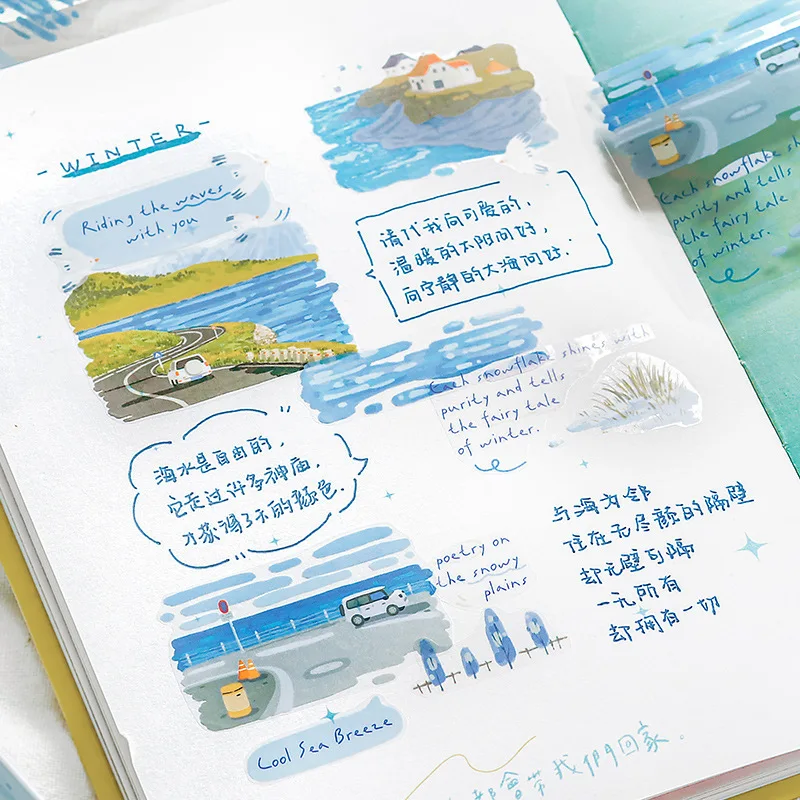 - WINTER -
Riding the waves
with you
请代我向可爱的，
温暖的太阳问好，
向宁静的大海问好.
Each snowflake shines with
purity and tells
the fairy tale
of winter.
海水是自由的，
它走过许多神庙，
才获得了不的颜色.
poetry on
the snowy
plains
与海为邻
住在无尽颜的隔壁
却无壁可隔
一无所有
却拥有一切
Cool Sea Breeze
都會带我們回家。
Each snowflake sh
purity and tells
the fairy tale
of winter.